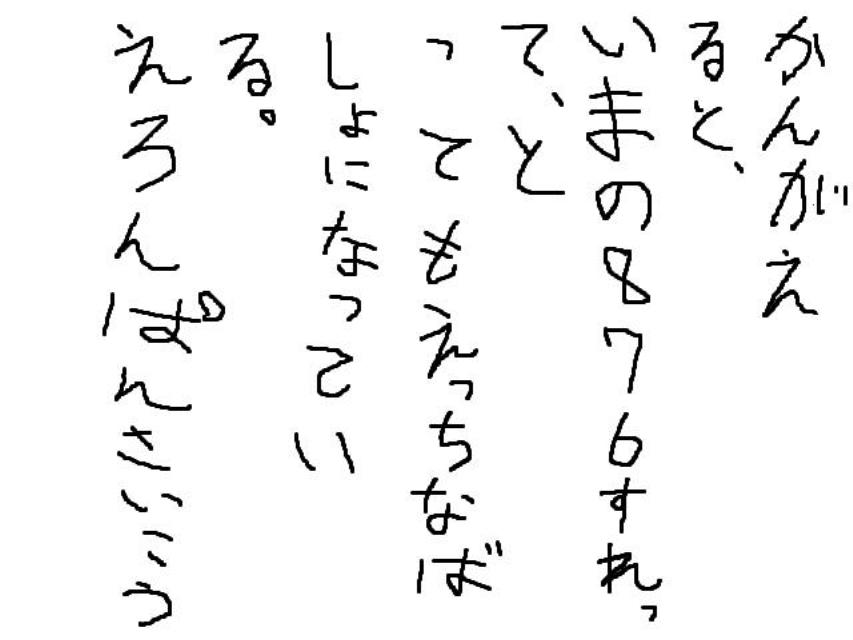 かんがえ
ると、
いまの876すれっ
て、と
ってもえっちなば
しょになってい
る。
えろんぱんさいこう